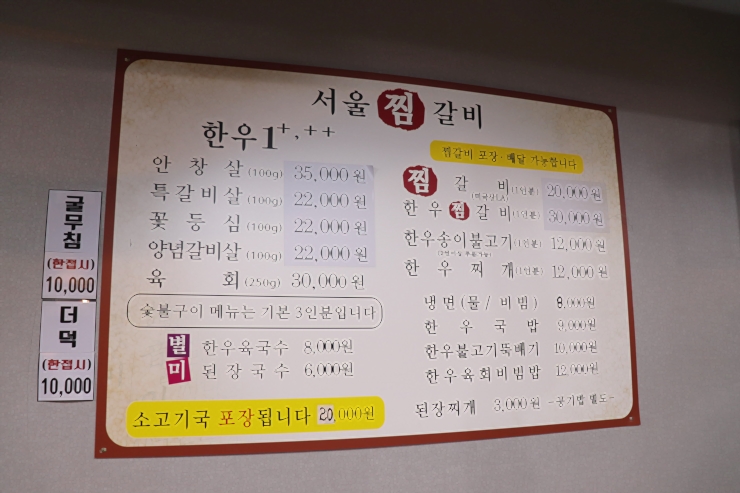 서울 찜 갈비
한우1+,++
안창살 (100g) 35,000원
특갈비살 (100g) 22,000원
꽃등심 (100g) 22,000원
양념갈비살 (100g) 22,000원
육 회 (250g) 30,000원
숯불구이 메뉴는 기본 3인분입니다
별미
한우육국수 8,000원
된장국수 6,000원
소고기국 포장됩니다 20,000원
찜갈비 포장·배달 가능합니다
찜 갈 비 (1인분) 20,000원
한우찜갈비 (1인분) 30,000원
한우송이불고기 (1인분) 12,000원
한우찌개 (1인분) 12,000원
냉면(물/비빔) 8,000원
한우국밥 9,000원
한우불고기뚝배기 10,000원
한우육회비빔밥 12,000원
된장찌개 3,000원 -공기밥 별도-
굴무침
(한접시)
10,000
더덕
(한접시)
10,000